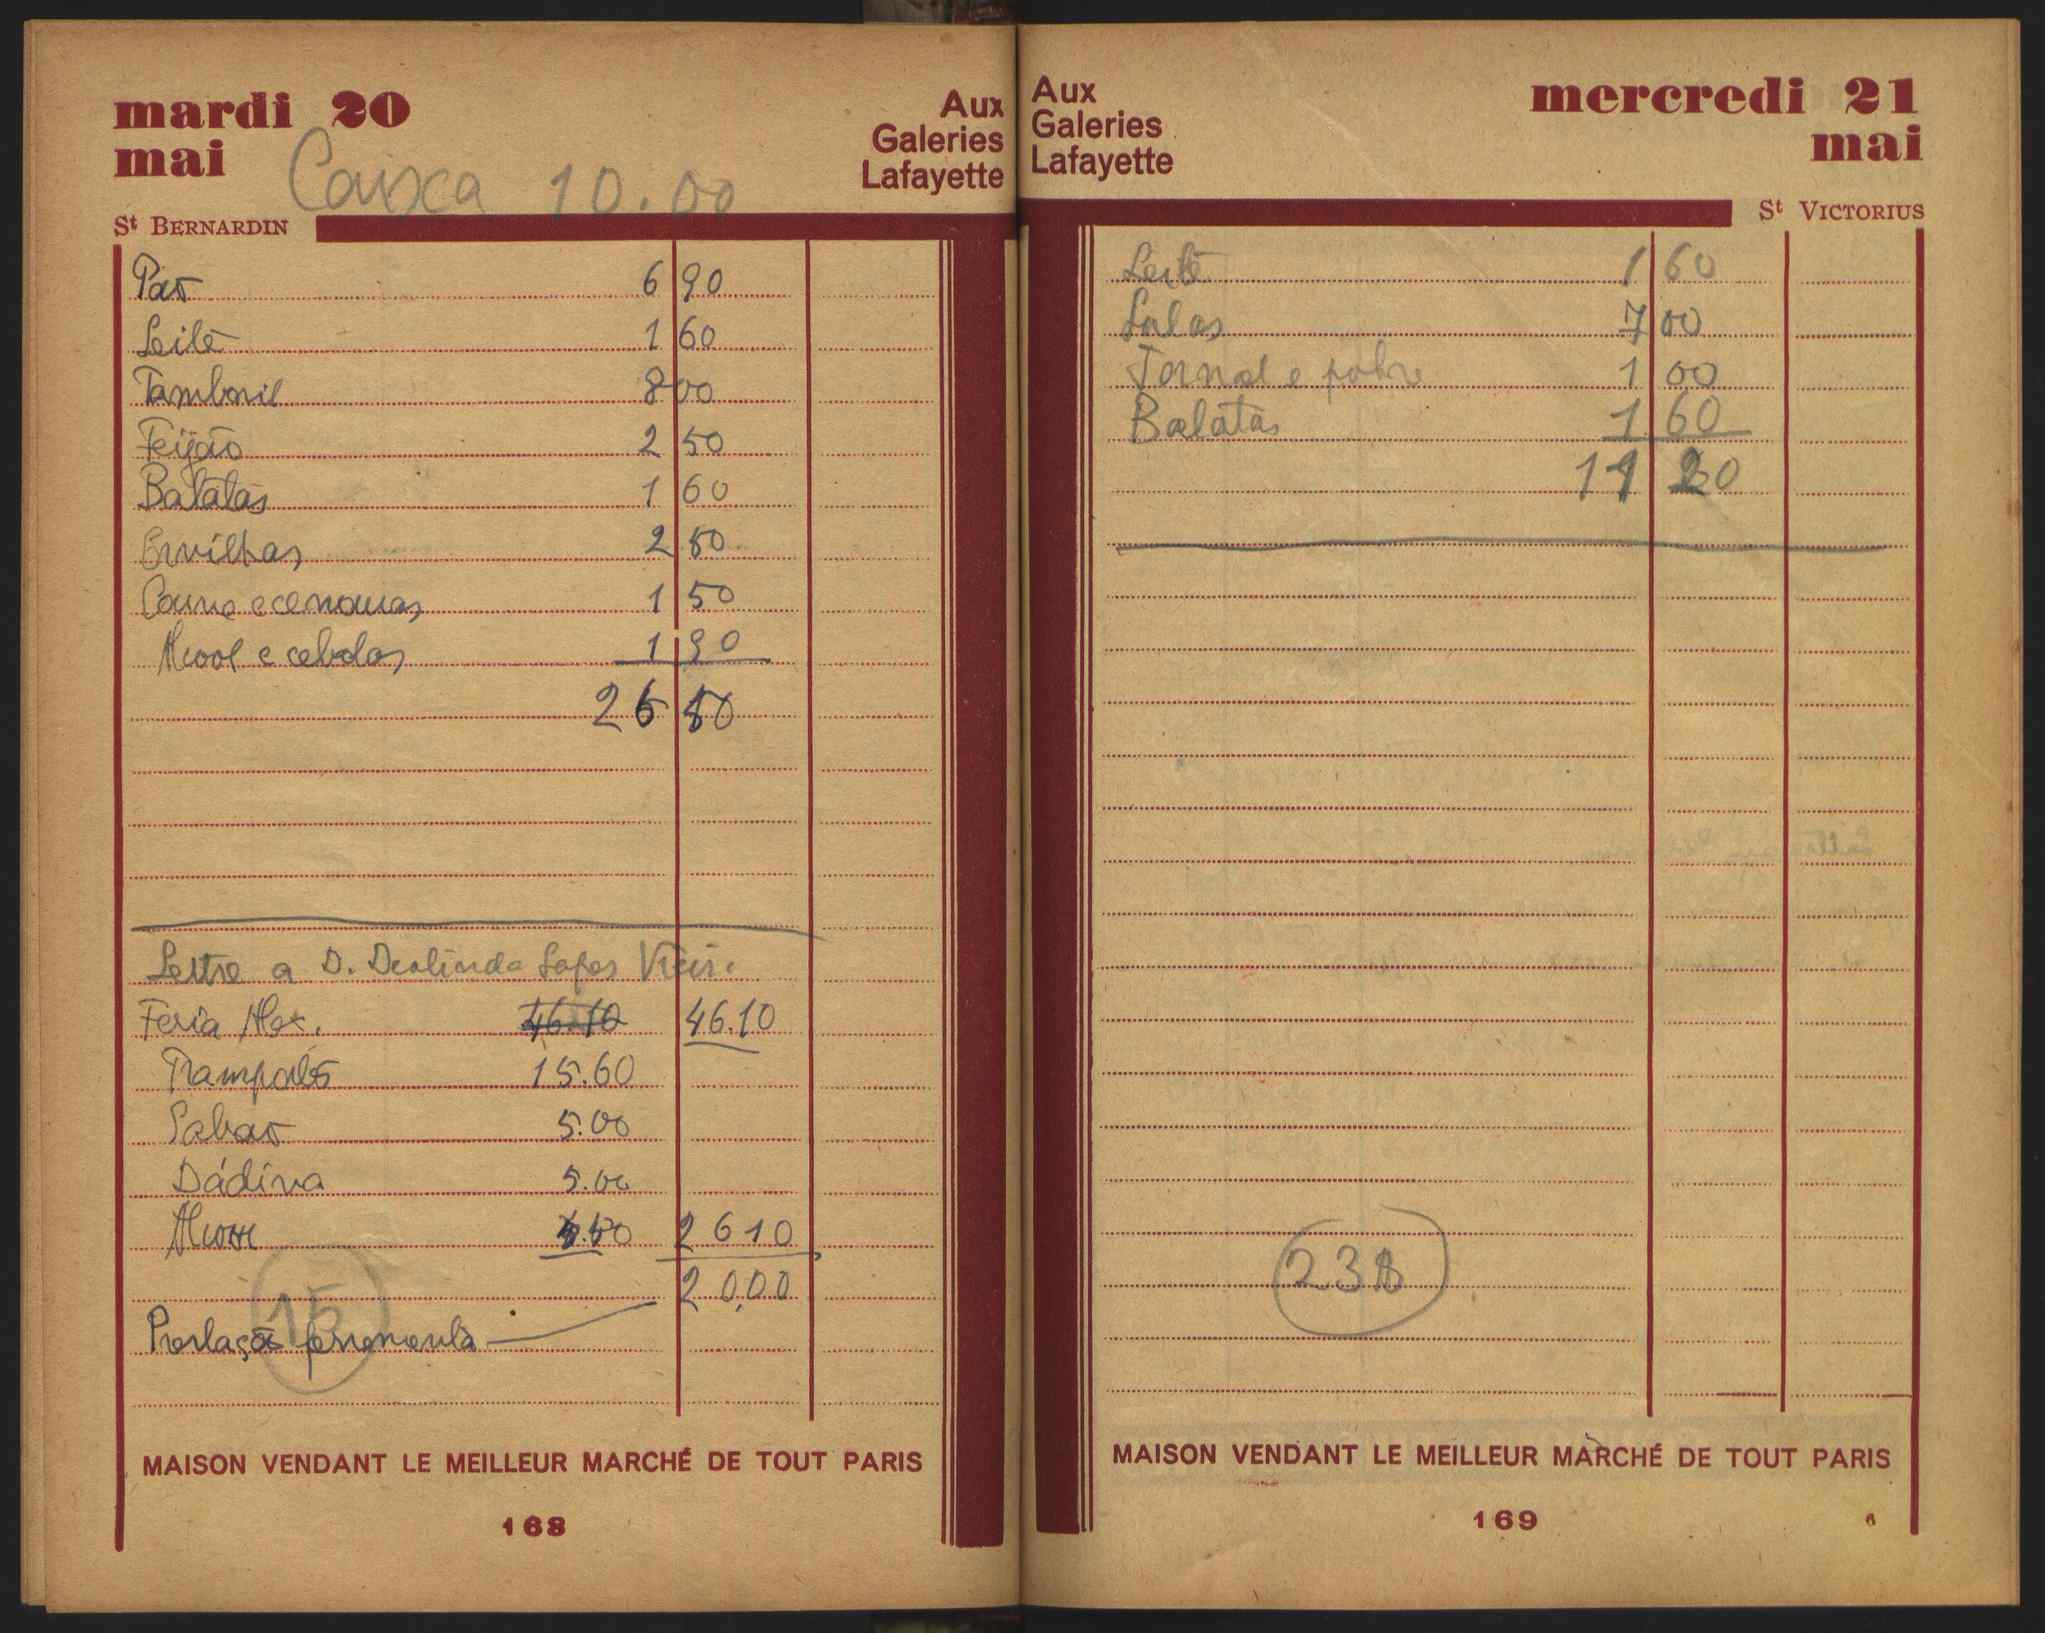 mardi 20
mai
Caixa 10.00
Aux
Galeries
Lafayette
St BERNARDIN
Pão 6 90
Leite 1 60
Tamboril 8 00
Feijão 2 50
Batatas 1 60
Ervilhas 2 50
Couve e cenouras 1 50
Alcool e cebolas 1 90
26 50
Lettre a D. Deolinda Lopes Vieira
Feria Alex. 46.10 46.10
Transportes 15.60
Sabão 5.00
Dádiva 5.00
26 10
20,00
15
Prestação ferramenta
MAISON VENDANT LE MEILLEUR MARCHÉ DE TOUT PARIS
168
Aux
Galeries
Lafayette
mercredi 21
mai
St VICTORIUS
Leite 1 60
Solas 7 00
Jornal e pobre 1 00
Batatas 1 60
11 20
238
MAISON VENDANT LE MEILLEUR MARCHÉ DE TOUT PARIS
169
6